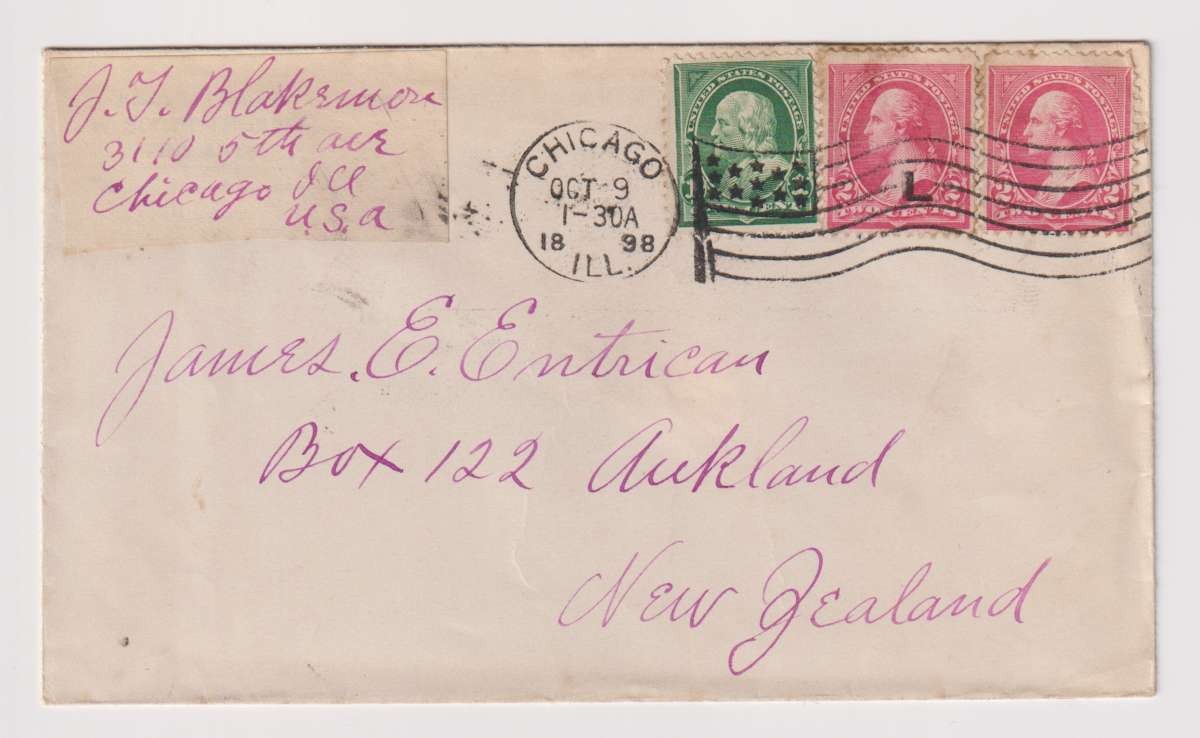 J. T. Blakemore
3110 5th ave
Chicago Ill
U.S.a
CHICAGO
OCT 9
1-30A
18 98
ILL.
UNITED STATES POSTAGE
UNITED STATES POSTAGE
2 TWO CENTS 2
L
UNITED STATES POSTAGE
2 TWO 2
James. E. Entrican
Box 122 Aukland
New Zealand